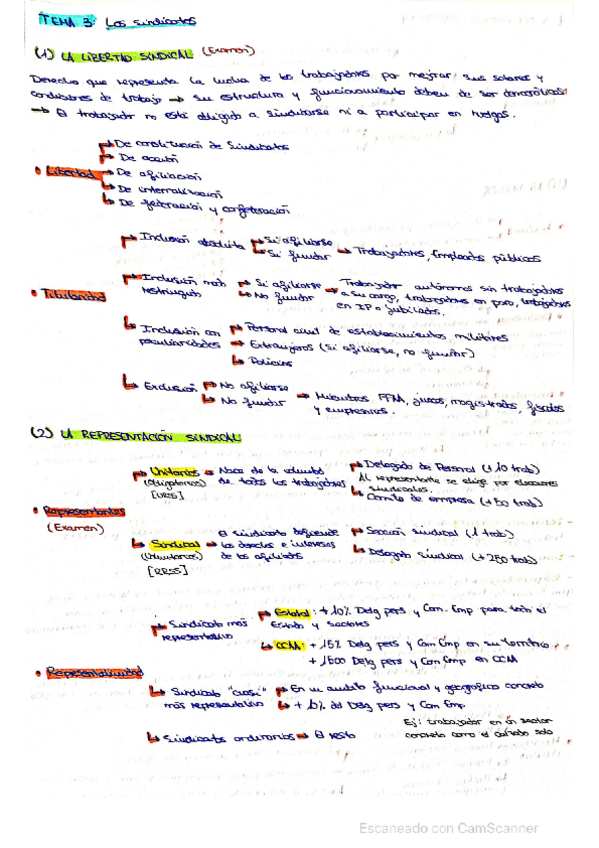 TEMA 3: Los sindicatos
(1) LA LIBERTAD SINDICAL (Examen)
Derecho que representa la lucha de los trabajadores por mejorar sus salarios y
condiciones de trabajo → su estructura y funcionamiento deben de ser democráticas
→ El trabajador no está obligado a sindicarse ni a participar en huelgas.
→ De constitución de Sindicatos
→ De acción
• Libertad → De afiliación
→ De internalización
→ De federación y confederación
→ Inclusión absoluta → Si afiliarse
→ Si fundar → Trabajadores, Empleados públicos
→ Inclusión más restringida → Si afiliarse
→ No fundar → Trabajador autónomos sin trabajadores
a su cargo, trabajadores en paro, trabajadores
en IP o jubilados.
• Titularidad
→ Inclusión con peculiaridades → Personal civil de establecimientos militares
→ Extranjeros (Si afiliarse, no fundar)
→ Policías
→ Exclusión → No afiliarse
→ No fundar → Miembros FFAA, jueces, magistrados, fiscales
y empresarios.
(2) LA REPRESENTACIÓN SINDICAL
→ Unitarios → Nace de la voluntad
(Obligatorios) de todos los trabajadores
[URSS]
→ Delegado de Personal (+10 trab)
Al representante se elige por elecciones
sindicales.
→ Comité de empresa (+50 trab)
• Representantes
(Examen)
→ Sindical → El sindicato defiende
(Voluntarios) los derechos e intereses
[RRSS] de los afiliados
→ Sección sindical (1 trab)
→ Delegado sindical (+250 trab)
→ Sindicato más
representativo
→ Estatal: +10% Delg pers y Com. Emp para todo el
Estado y sectores
→ CCAA: +15% Delg pers y Com Emp en su territorio
+1500 Delg pers y Com Emp en CCAA
• Representatividad
→ Sindicato "cuasi"
más representativo
→ En un ámbito funcional y geográfico concreto
→ +10% del Delg pers y Com Emp
→ Sindicatos ordinarios → El resto
Ej: trabajador en un sector
concreto como el calzado solo
Escaneado con CamScanner